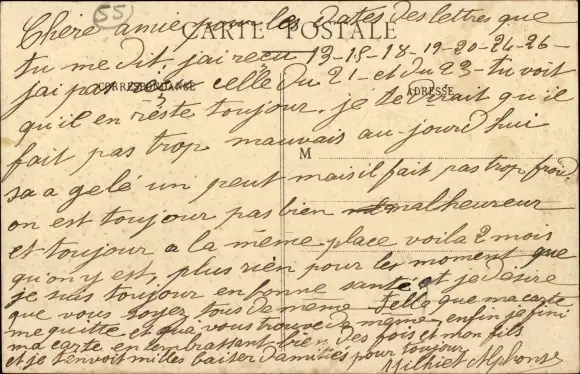 55
CARTE POSTALE
CORRESPONDANCE
ADRESSE
M
Chère amie pour les dates des lettres que
tu me dit, j'ai recu 13-15-18-19-20-24-26-
j'ai pas celle du 21- et du 23- tu voit
qu'il en reste toujour. je te dirait qu'il
fait pas trop mauvais au-jourd'hui
sa a gelé un peut mais il fait pas trop froid
on est toujour pas bien malheureur
et toujour a la même place voila 2 mois
qu'on y est, plus rien pour les moment que
je suis toujour en bonne santé et je désire
que vous soyer tous de meme que ma carte
me quitte et qua vous trouve de même enfin je fini
ma carte en t'embrassant bien des fois et mon fils
et je t'envoit milles baiser d'amitiés pour toujour
Alphonse